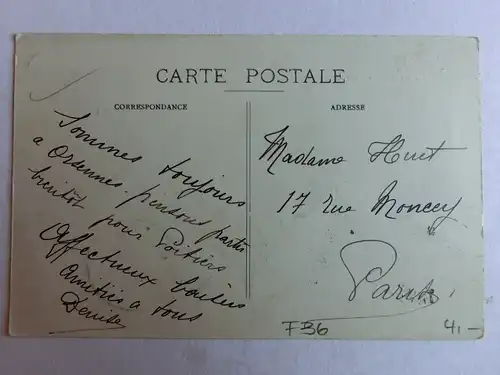 CARTE POSTALE
CORRESPONDANCE
ADRESSE
Sommes toujours
a Ardennes. pensons partir
bientôt pour Poitiers
Affectueux baisers
Amitiés a tous
Denise
Madame Huet
17 Rue Moncey
Paris
FB6
4,-